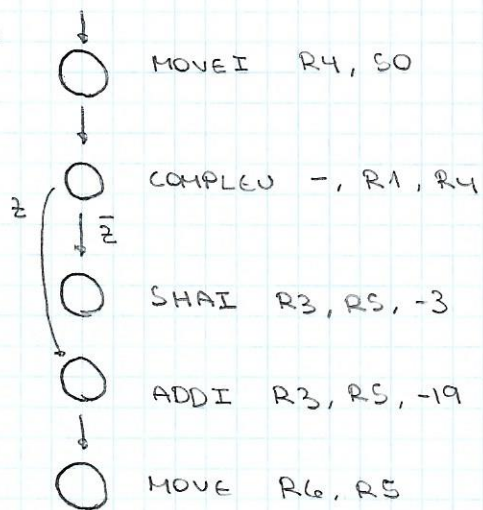 MOVEI R4, 50
COMPLEU -, R1, R4
z z̄
SHAI R3, R5, -3
ADDI R3, R5, -19
MOVE R6, R5